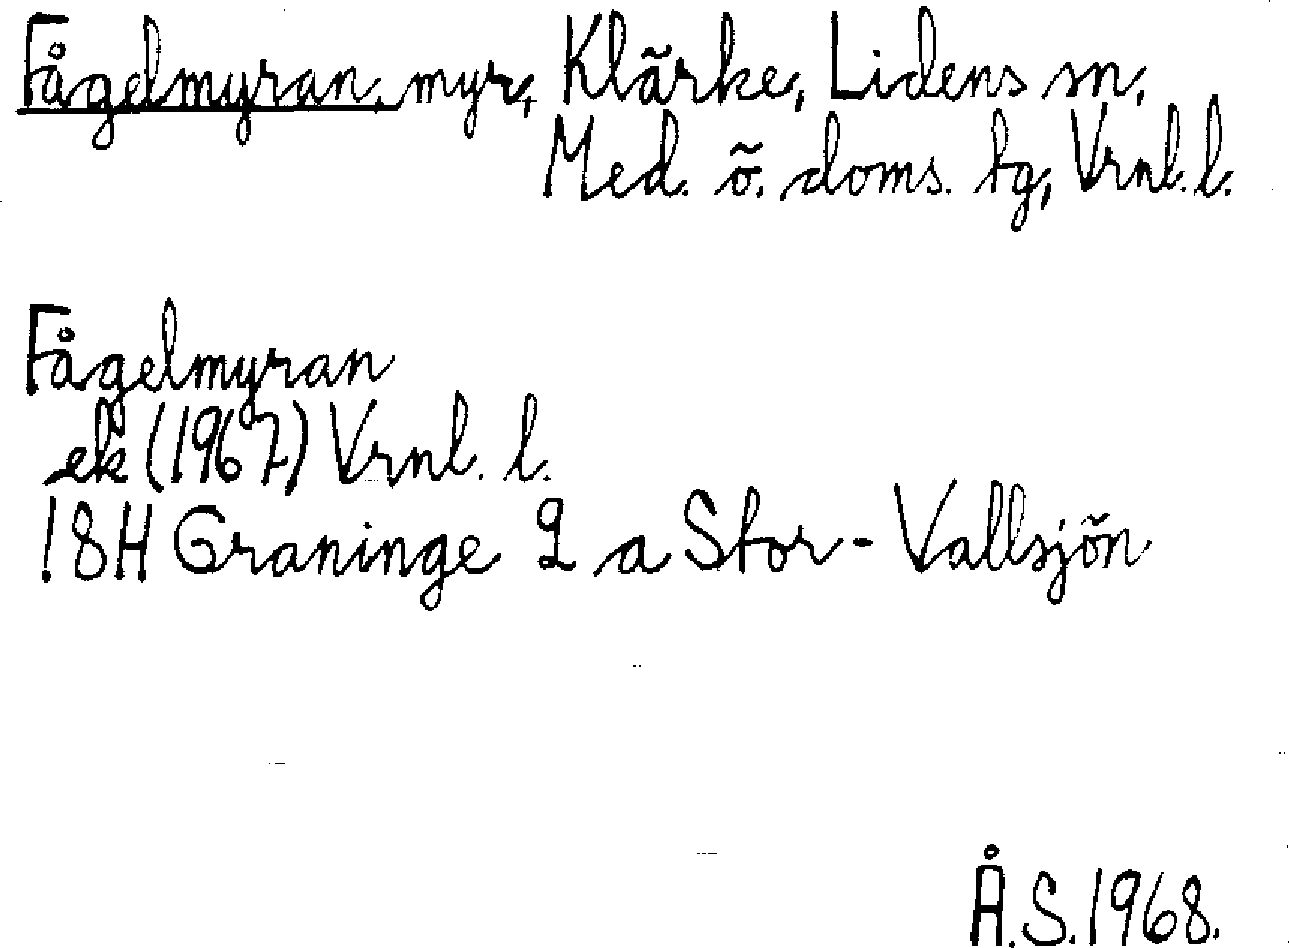 Fågelmyran, myr, Klärke, Lidens sn,
Med. ö. doms. tg, Vrnl. l.
Fågelmyran
ek (1967) Vrnl. l.
18H Graninge 2 a Stor-Vallsjön
Å.S. 1968.